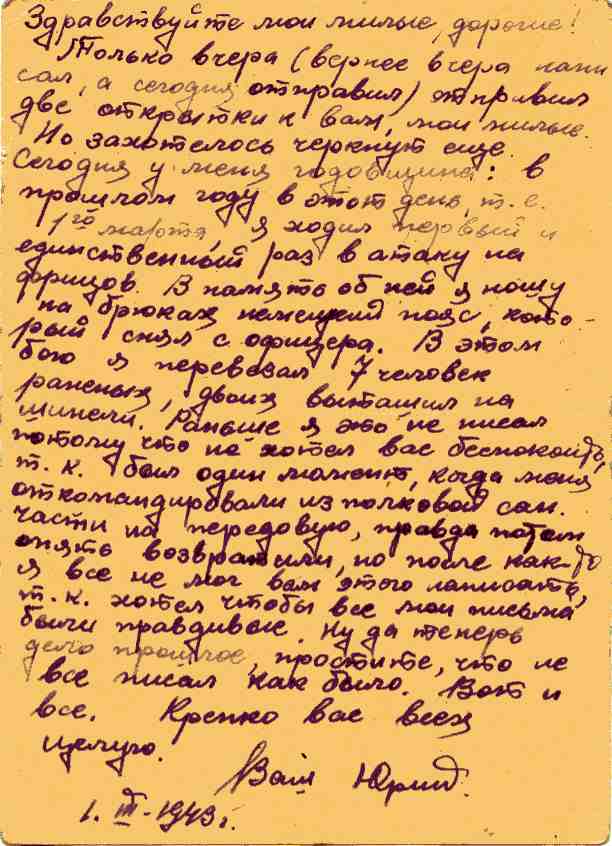 Здравствуйте мои милые, дорогие!
Только вчера (вернее вчера напи
сал, а сегодня отправил) отправил
две открытки к вам, мои милые.
Но захотелось черкнут еще.
Сегодня у меня годовщина: в
прошлом году в этот день, т.е.
1го марта, я ходил первый и
единственный раз в атаку на
фрицов. В память об ней я ношу
на брюках немецкий пояс, кото-
рый снял с офицера. В этом
бою я перевязал 7 человек
раненых, двоих вытащил на
шинели. Раньше я это не писал
потому что не хотел вас беспокоить,
т.к. был один момент, когда меня
откомандировали из полковой сан.
части на передовую, правда потом
опять возвратили, но после как-то
я все не мог вам этого написать,
т.к. хотел чтобы все мои письма
были правдивые. Ну да теперь
дело прошлое, простите, что не
все писал как было. Вот и
все. Крепко вас всех
целую.
Ваш Юрий.
1. III-1943 г.